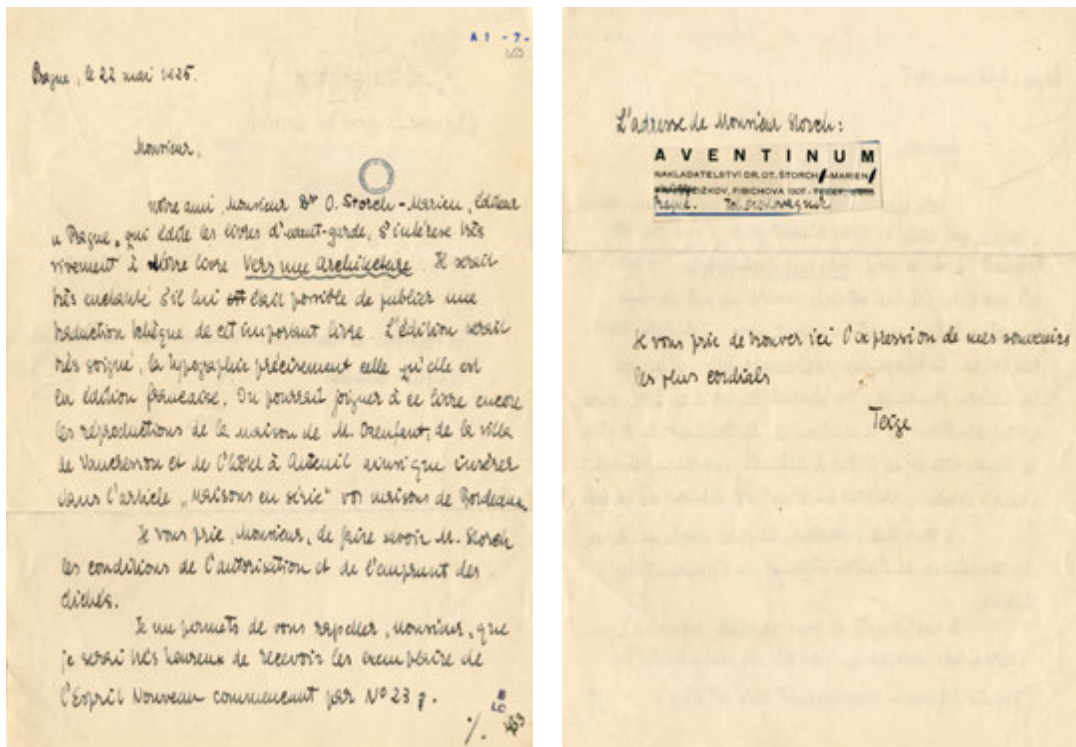 A1 - 7 -
Prague, le 22 mai 1925.
Monsieur,
notre ami, Monsieur Dr O. Storch-Marien, éditeur
a Prague, qui édite les livres d'avant-garde, s'intérese très
vivement à Votre livre Vers une Architecture. Il serait
très enchanté s'il lui était possible de publier une
traduction tchèque de cet important livre. L'édition serait
très soigné, la typographie précisement celle qu'elle est
en édition française. On pourrait joigner à ce livre encore
les réproductions de la maison de M. Ozenfant, de la villa
de Vaucresson et de l'hôtel à Auteuil ainsi que insérer
dans l'article „Maisons en série" vos maisons de Bordeaux.
Je vous prie, Monsieur, de faire savoir M. Storch
les conditions de l'autorisation et de l'emprunt des
clichés.
Je me permets de vous rapeller, Monsieur, que
je serai très heureux de recevoir les exemplaire de
l'Esprit Nouveau commencant par N° 23
%.
L'adresse de Monsieur Storch:
AVENTINUM
NAKLADATELSTVÍ DR. OT. ŠTORCH-MARIEN
FIBICHOVA 1007 -
Prague. Tchécoslovaquie
Je vous prie de trouver ici l'expression de mes souvenirs
les plus cordials
Teige